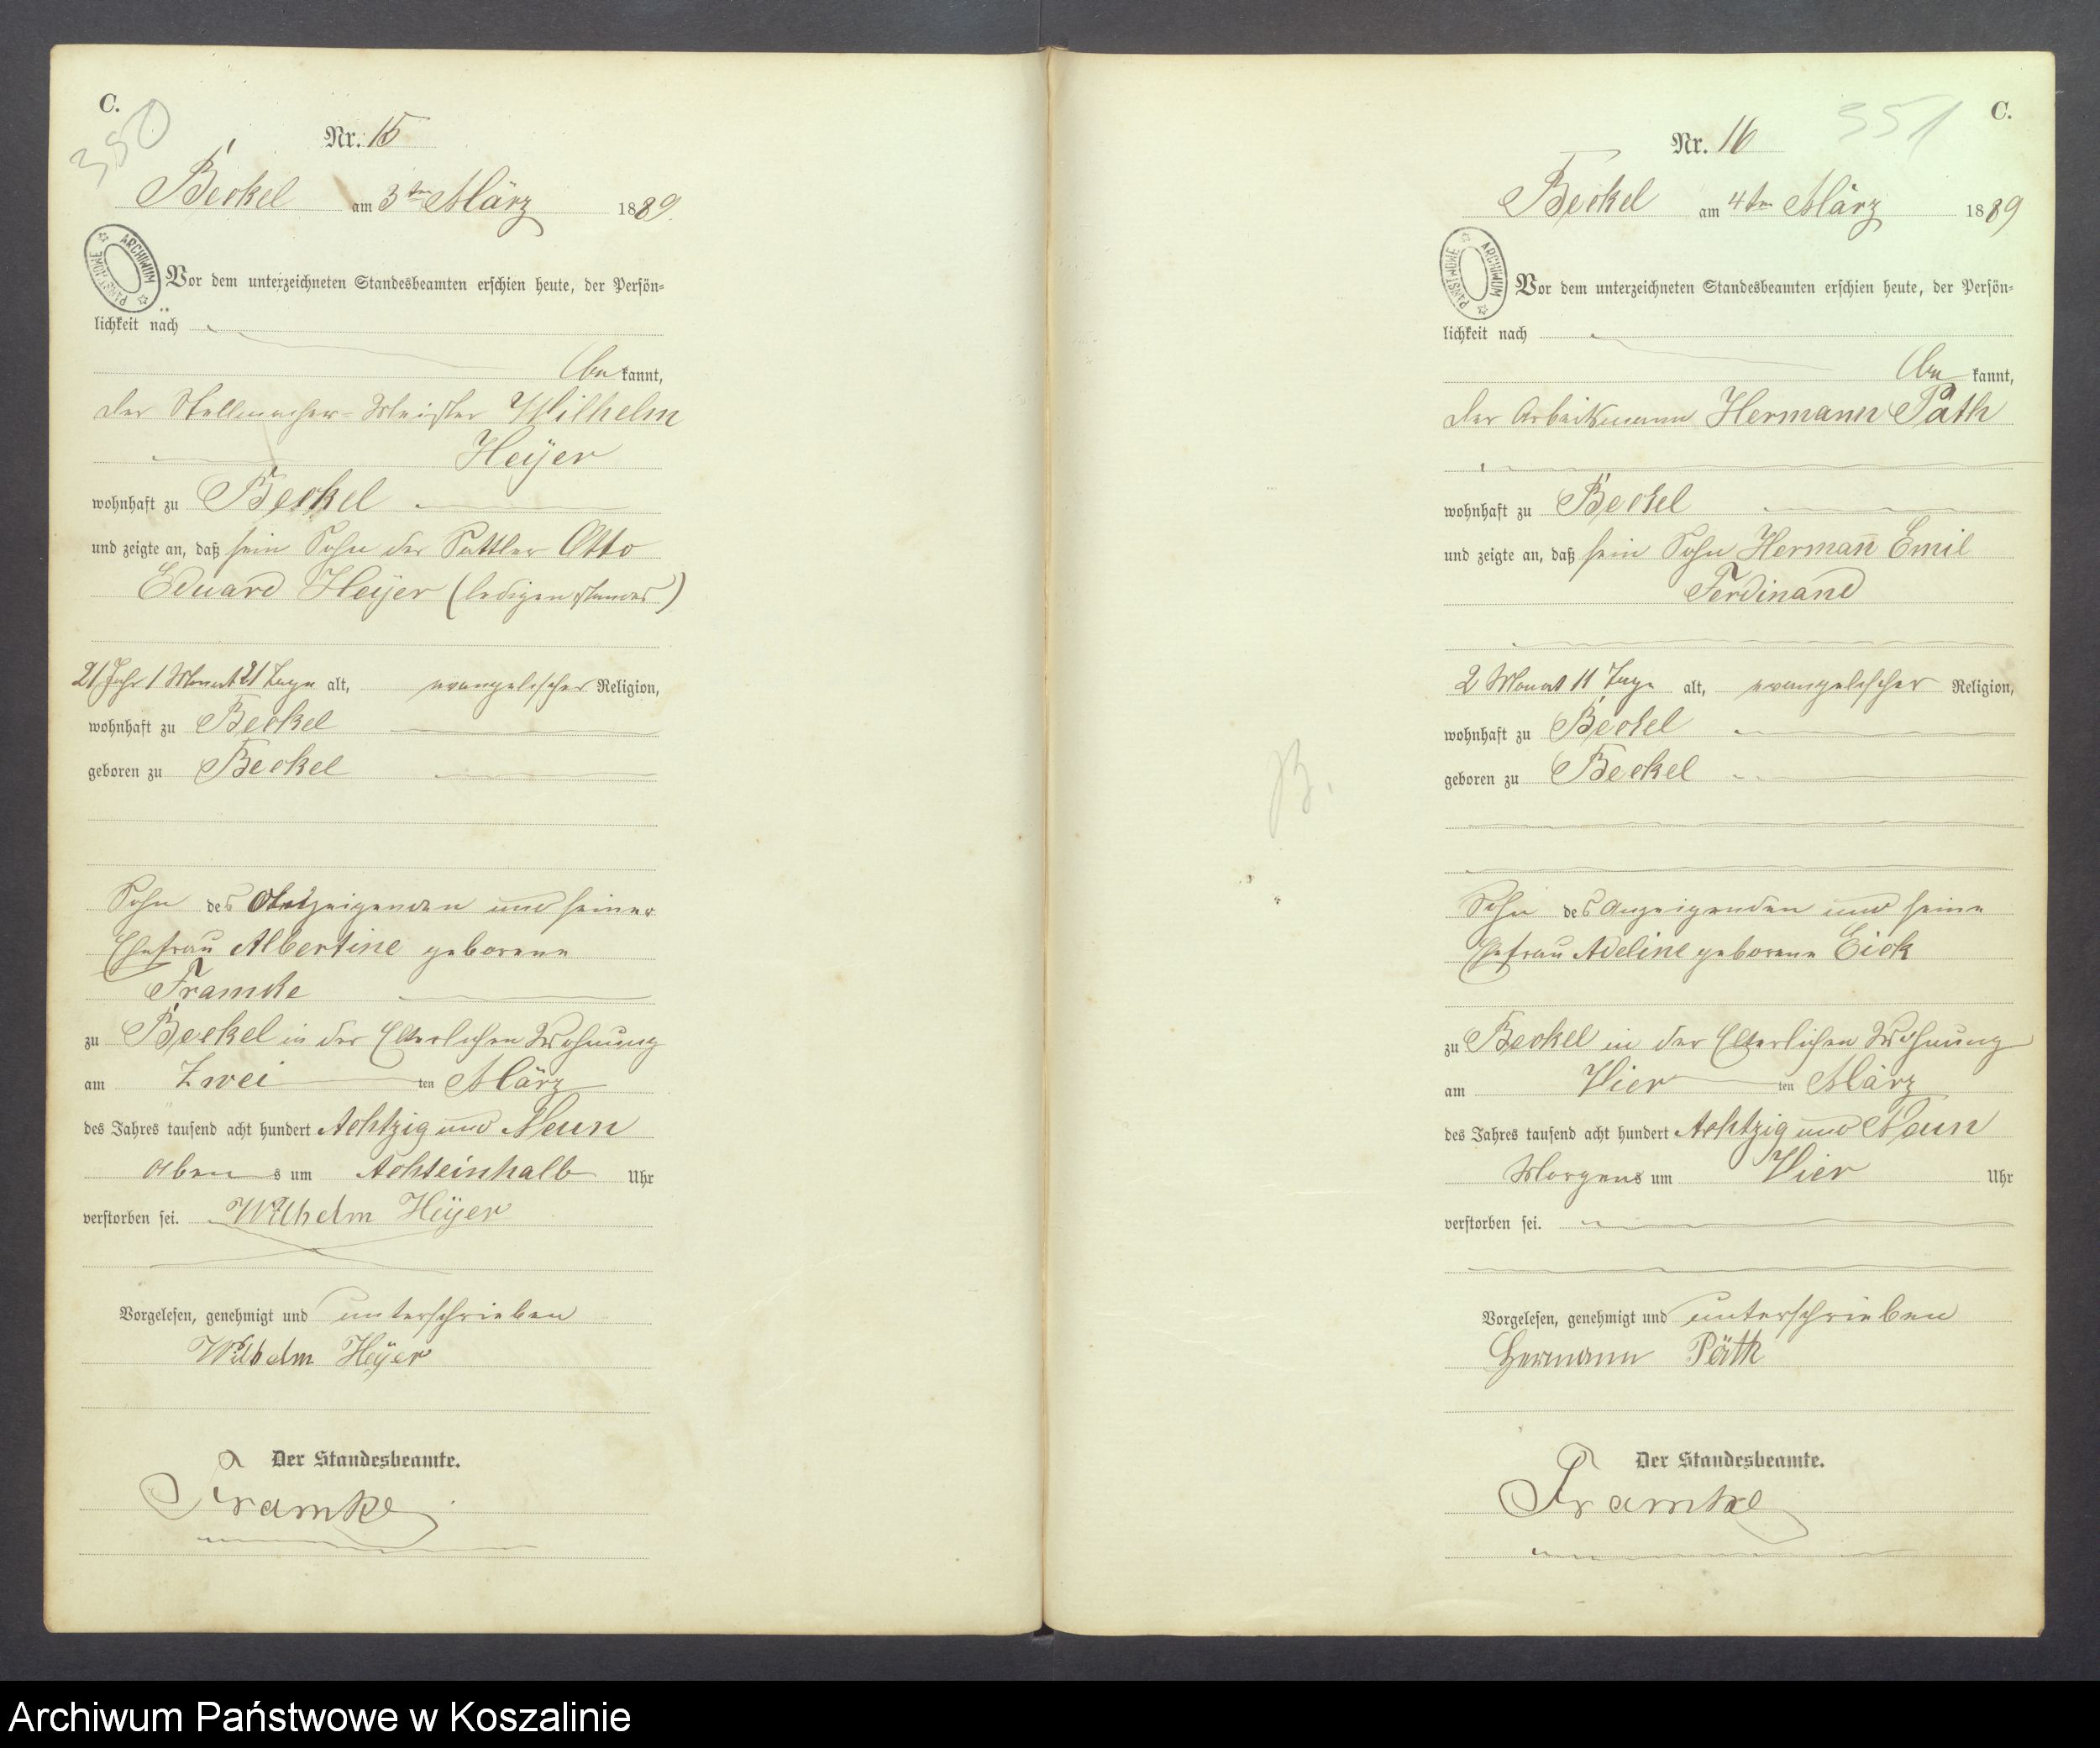 C.
350
Nr. 15
Beckel am 3ten März 1889.
ARCHIWUM PAŃSTWOWE
Vor dem unterzeichneten Standesbeamten erschien heute, der Persön=
lichkeit nach
bekannt,
der Stellmacher=Meister Wilhelm
Heÿer
wohnhaft zu Beckel
und zeigte an, daß sein Sohn der Sattler Otto
Eduard Heÿer (ledigen standes)
21 Jahr 1 Monat 21 Tage alt, evangelischer Religion,
wohnhaft zu Beckel
geboren zu Beckel
Sohn des Anzeigenden und seiner
Ehefrau Albertine geborene
Framke
zu Beckel in der Elterlichen Wohnung
am Zwei ten März
des Jahres tausend acht hundert Achtzig und Neun
Abends um Achteinhalb Uhr
verstorben sei. Wilhelm Heÿer
Vorgelesen, genehmigt und unterschrieben
Wilhelm Heÿer
Der Standesbeamte.
Framke
C.
351
Nr. 16
Beckel am 4ten März 1889
ARCHIWUM PAŃSTWOWE
Vor dem unterzeichneten Standesbeamten erschien heute, der Persön=
lichkeit nach
bekannt,
der Arbeitsmann Hermann Päth
wohnhaft zu Beckel
und zeigte an, daß sein Sohn Herman̄ Emil
Ferdinand
2 Monat 11 Tage alt, evangelischer Religion,
wohnhaft zu Beckel
geboren zu Beckel
B.
Sohn des Anzeigenden und seine
Ehefrau Adeline geborene Eick
zu Beckel in der Elterlichen Wohnung
am Vier ten März
des Jahres tausend acht hundert Achtzig und Neun
Morgens um Vier Uhr
verstorben sei.
Vorgelesen, genehmigt und unterschrieben
Hermann Päth
Der Standesbeamte.
Framke
Archiwum Państwowe w Koszalinie